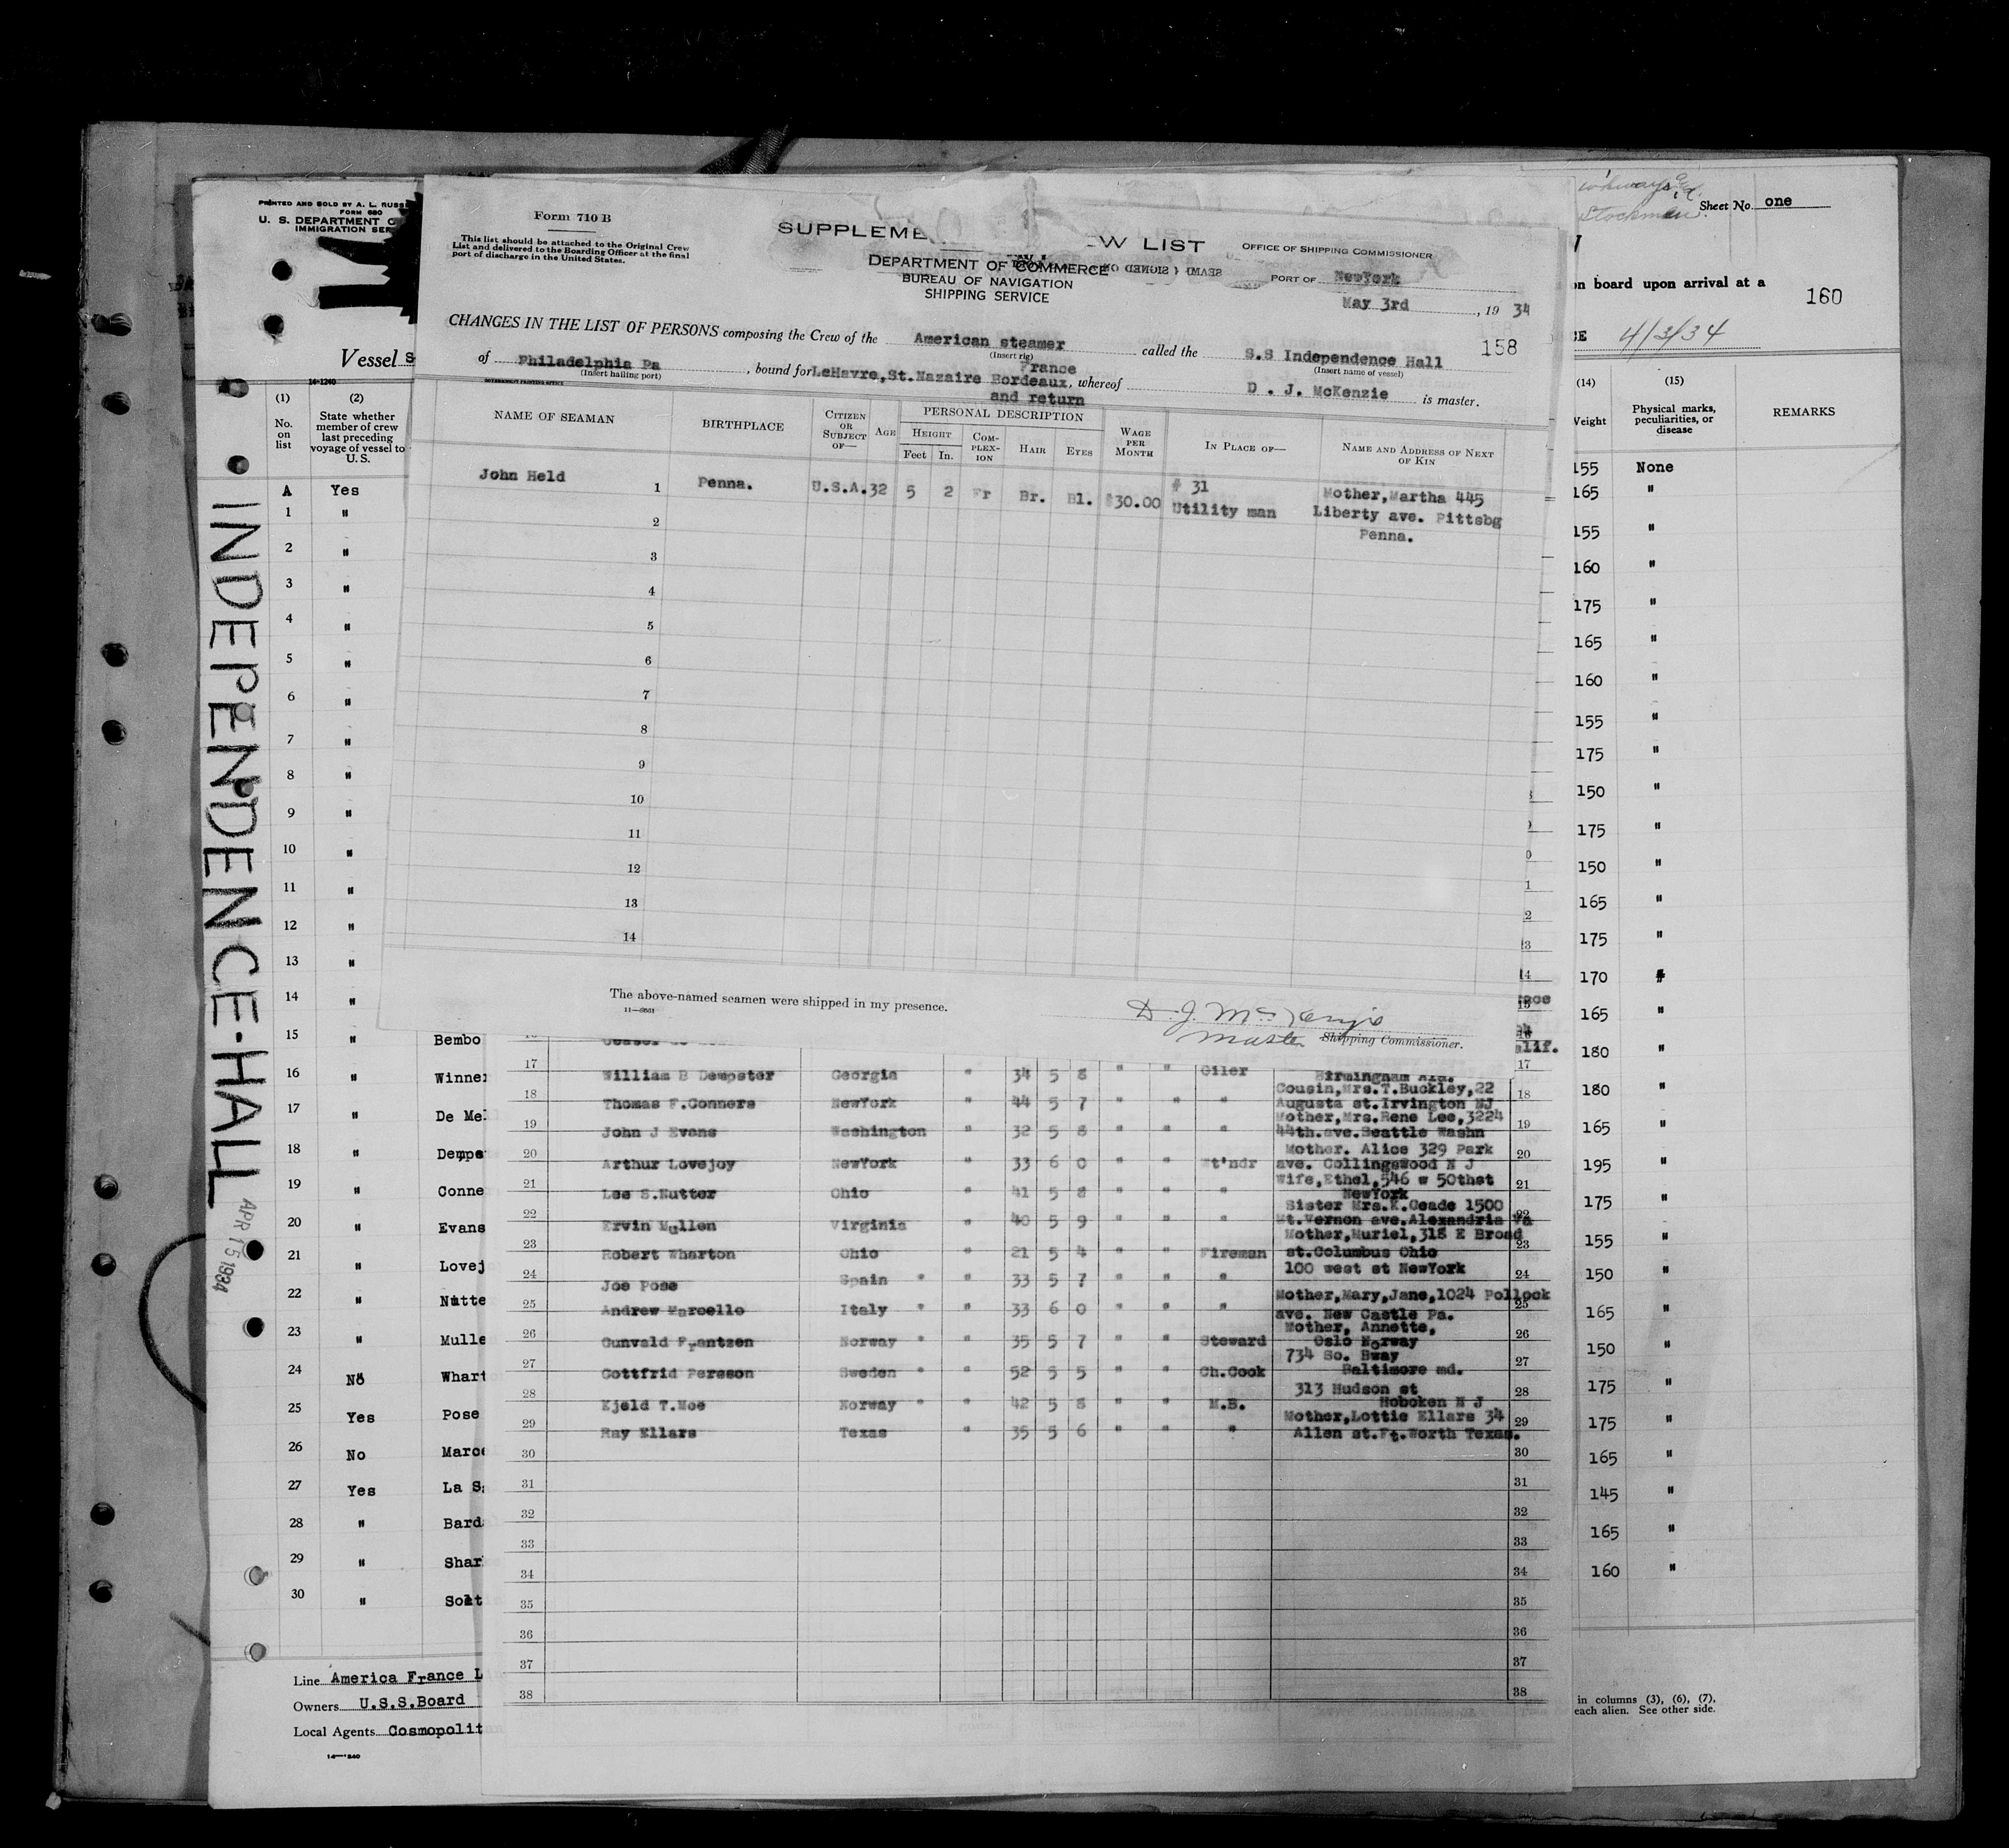 Form 710 B
This list should be attached to the Original Crew
List and delivered to the Boarding Officer at the final
port of discharge in the United States.
SUPPLEME EW LIST
DEPARTMENT OF COMMERCE
BUREAU OF NAVIGATION
SHIPPING SERVICE
OFFICE OF SHIPPING COMMISSIONER
PORT OF NewYork
May 3rd, 1934
CHANGES IN THE LIST OF PERSONS composing the Crew of the American steamer called the S.S Independence Hall 158
(Insert rig) (Insert name of vessel)
of Philadelphia Pa, bound for LeHavre,St.Nazaire Bordeaux, France and return whereof D . J. McKenzie is master.
(Insert hailing port)
GOVERNMENT PRINTING OFFICE
NAME OF SEAMAN BIRTHPLACE CITIZEN OR SUBJECT OF— AGE PERSONAL DESCRIPTION WAGE PER MONTH IN PLACE OF— NAME AND ADDRESS OF NEXT OF KIN
HEIGHT COMPLEXION HAIR EYES
Feet In.
John Held 1 Penna. U.S.A. 32 5 2 Fr Br. Bl. $30.00 # 31 Utility man Mother,Martha 445
Liberty ave. Pittsbg
Penna.
2
3
4
5
6
7
8
9
10
11
12
13
14
The above-named seamen were shipped in my presence.
D. J. McKenzie
Master Shipping Commissioner.
17 William B Dempster Georgia " 34 5 8 " " Oiler Birmingham Ala. 17
18 Thomas F.Conners NewYork " 44 5 7 " " " Cousin,Mrs.T.Buckley,22 Augusta st.Irvington NJ 18
19 John J Evans Washington " 32 5 8 " " " Mother,Mrs.Rene Lee,3224 44th.ave.Seattle Washn 19
20 Arthur Lovejoy NewYork " 33 6 0 " " Wt'ndr Mother. Alice 329 Park ave. Collingswood N J 20
21 Lee S.Nutter Ohio " 41 5 8 " " " Wife,Ethel,546 w 50thst NewYork 21
22 Ervin Mullen Virginia " 40 5 9 " " " Sister Mrs.K.Geade 1500 Mt.Vernon ave.Alexandria Va 22
23 Robert Wharton Ohio " 21 5 4 " " Fireman Mother,Muriel,318 E Broad st.Columbus Ohio 23
24 Joe Pose Spain " " 33 5 7 " " " 100 west st NewYork 24
25 Andrew Marcello Italy " " 33 6 0 " " " Mother,Mary,Jane,1024 Pollock ave. New Castle Pa. 25
26 Gunvald Frantzen Norway " " 35 5 7 " " Steward Mother, Annette, Oslo Norway 26
27 Gottfrid Persson Sweden " " 52 5 5 " " Ch.Cook 734 So. Bway Baltimore md. 27
28 Kjeld T.Moe Norway " " 42 5 8 " " M.B. 313 Hudson st Hoboken N J 28
29 Ray Ellars Texas " 35 5 6 " " " Mother,Lottie Ellars 34 Allen st.Ft.Worth Texas. 29
30 30
31 31
32 32
33 33
34 34
35 35
36 36
37 37
38 38
PRINTED AND SOLD BY A. L. RUSS
FORM 680
U. S. DEPARTMENT O
IMMIGRATION SER
Vessel S
14-1240
(1) (2)
No. on list
State whether member of crew last preceding voyage of vessel to U. S.
A Yes
1 "
2 "
3 "
4 "
5 "
6 "
7 "
8 "
9 "
10 "
11 "
12 "
13 "
14 "
15 " Bembo
16 " Winner
17 " De Mel
18 " Dempe
19 " Conne
20 " Evans
21 " Lovej
22 " Nutte
23 " Mulle
24 No Whart
25 Yes Pose
26 No Marce
27 Yes La S
28 " Bard
29 " Shar
30 " Solt
INDEPENDENCE-HALL
APR 15 1934
Line America France L
Owners U.S.S.Board
Local Agents Cosmopolit
Stockman
Sheet No. one
on board upon arrival at a
160
4/3/34
(14) (15)
Weight
Physical marks, peculiarities, or disease
REMARKS
155 None
165 "
155 "
160 "
175 "
165 "
160 "
155 "
175 "
150 "
175 "
150 "
165 "
175 "
170 "
165 "
180 "
180 "
165 "
195 "
175 "
155 "
150 "
165 "
150 "
175 "
175 "
165 "
145 "
165 "
160 "
in columns (3), (6), (7),
each alien. See other side.